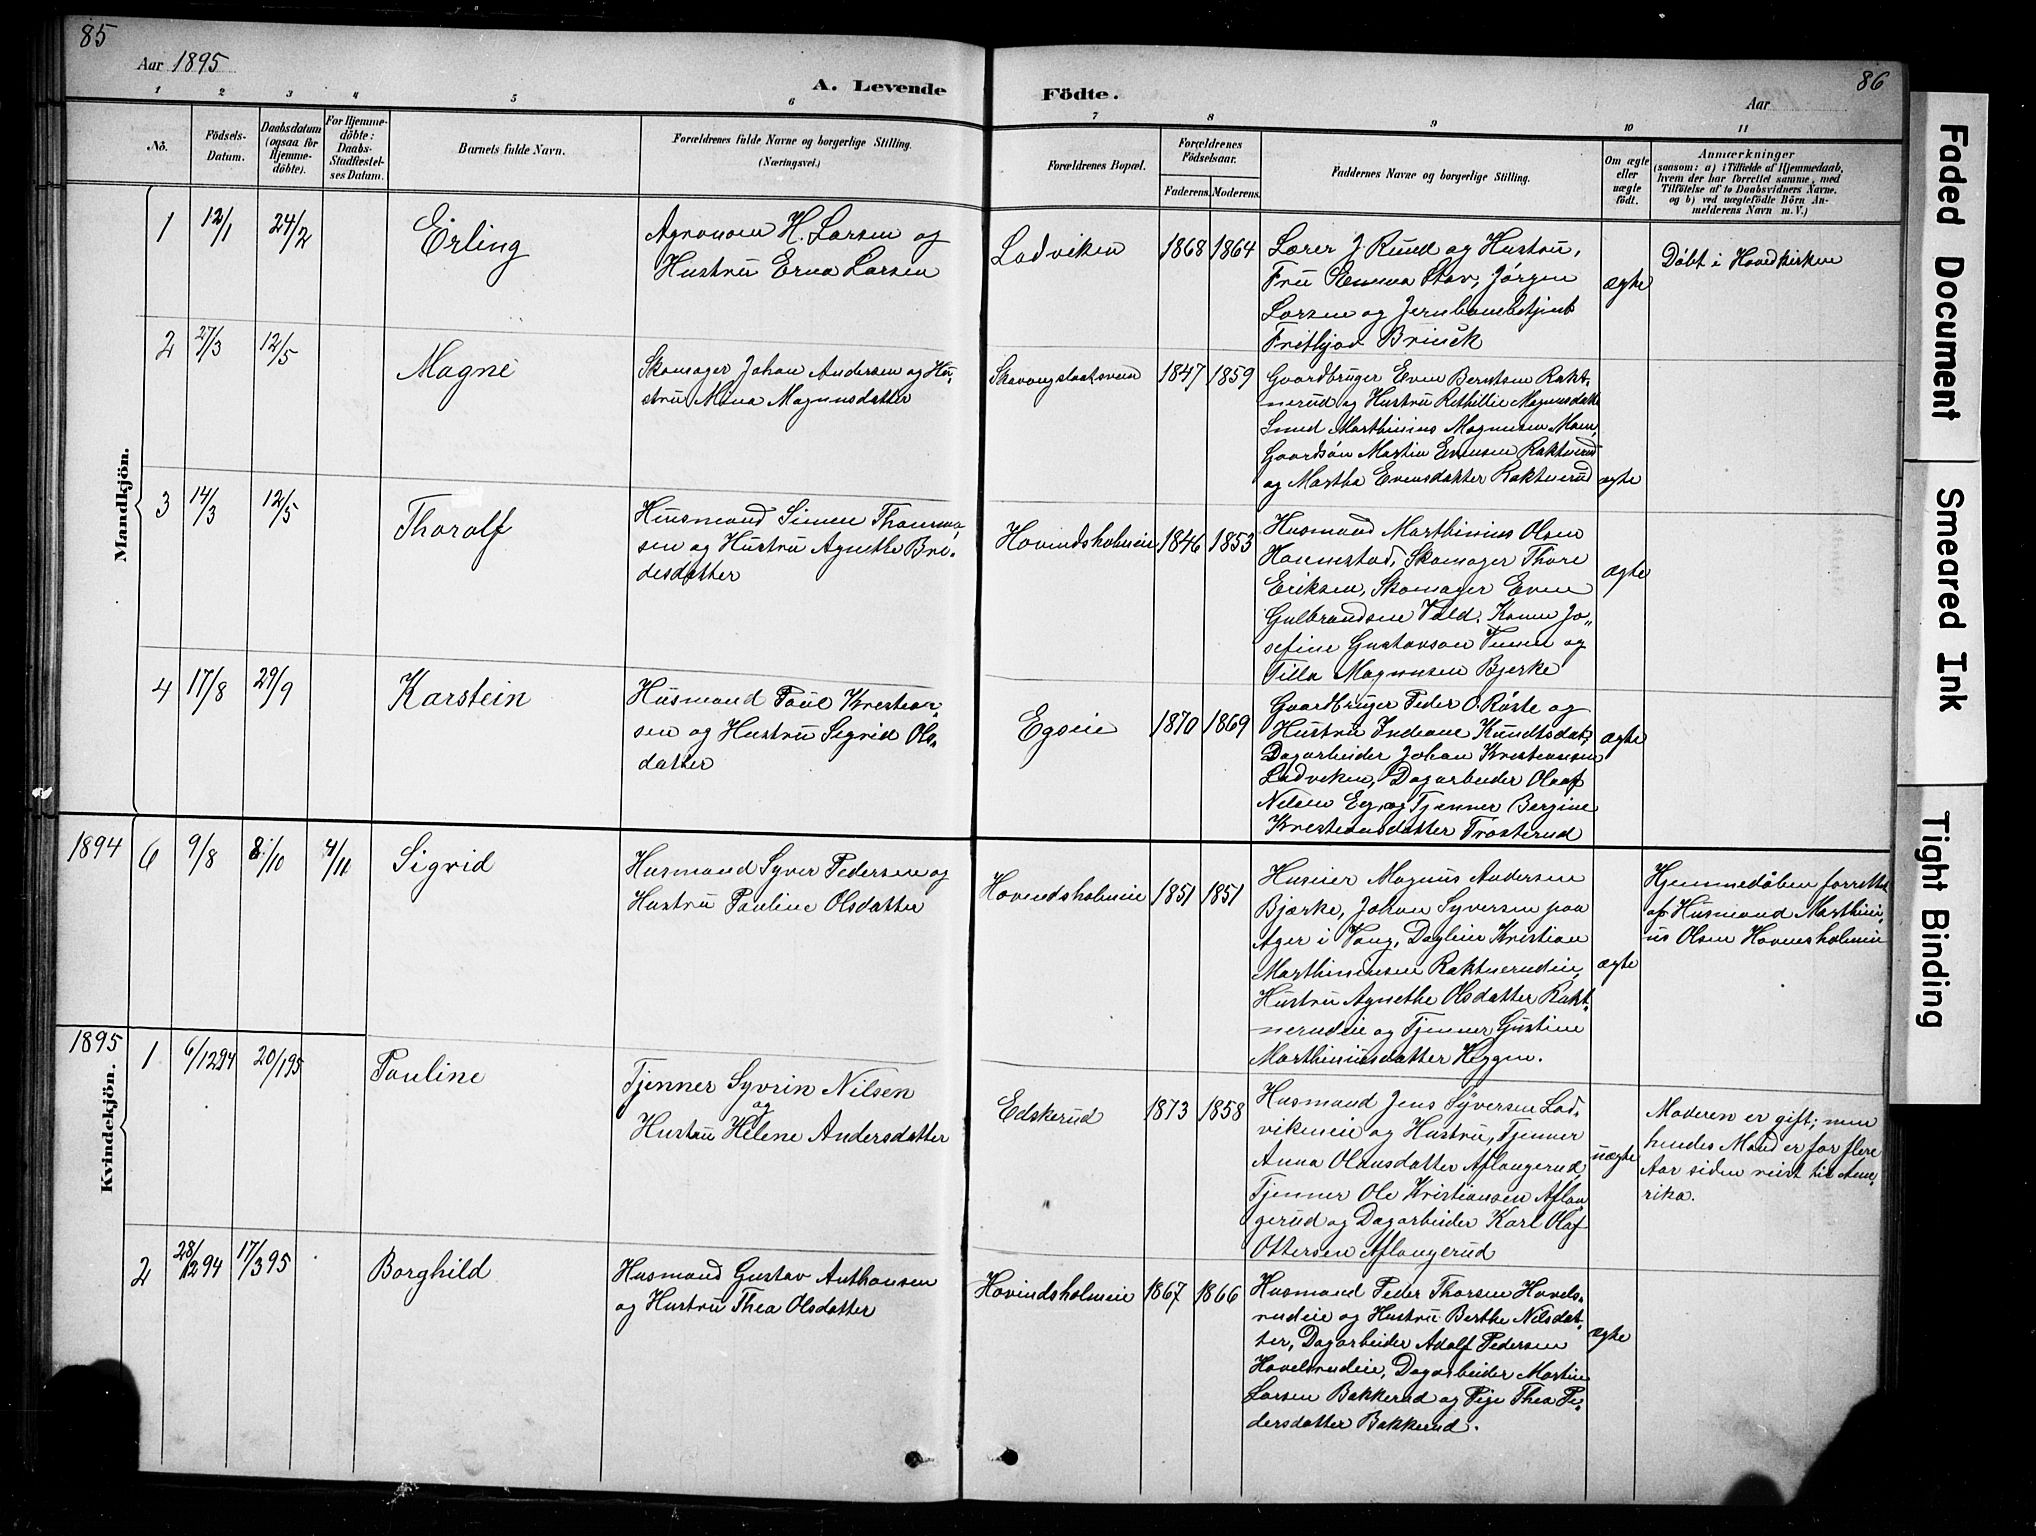 85
Aar 1895
A. Levende
Födte.
Aar
86
1 2 3 4 5 6 7 8 9 10 11
No.
Födsels-Datum.
Daabsdatum (ogsaa for Hjemme-döbte).
For Hjemme-döbte: Daabs-Stadfæstel-ses Datum.
Barnets fulde Navn.
Forældrenes fulde Navne og borgerlige Stilling.
(Næringsvei.)
Forældrenes Bopæl.
Forældrenes Födselsaar.
Faderens. Moderens.
Faddernes Navne og borgerlige Stilling.
Om ægte eller uægte födt.
Anmærkninger
(saasom: a) i Tilfælde af Hjemmedaab,
hvem der har forrettet samme, med
Tilföielse af to Daabsvidners Navne.
og b) ved uægtefödte Börn An-
melderens Navn m. V.)
Mandkjön.
1 12/1 24/2 Erling
Agronom H. Larsen og
Hustru Erna Larsen
Ladviken 1868 1864
Lærer J. Ruud og Hustru,
Fru Emma Stav, Jørgen
Larsen og Jernbanebetjent
Frithjov
ægte
Døbt i Hovedkirken
2 27/3 12/5 Magne
Skomager Johan Andersen og Hu-
stru Mina Magnusdatter
1847 1859
Gaardbruger Even Berntsen Rakt-
nerud og Hustru Magnusdatt
Smed Marthinius Magnusen
Gaardsøn Martin Evensen Raktnerud
og Martha Evensdatter Raktnerud
ægte
3 14/3 12/5 Thoralf
Husmand Simen Thomas-
sen og Hustru Agnethe Bre-
desdatter
Hovindsholmeie 1846 1853
Husmand Marthinius Olsen
Skomager Thore
Eriksen, Skomager Even
Gulbrandsen Vold, Kone Jo-
sefine Gustavson og
Tilla Magnusen Bjerke
ægte
4 17/8 29/9 Karstein
Husmand Paul Kristian-
sen og Hustru Sigrid Ols-
datter
Egseie 1870 1869
Gaardbruger Peder O. Røste og
Hustru Indiane Knudtsdat,
Dagarbeider Johan Kristiansen
Ladviken, Dagarbeider Olaf
Nilsen Eg, og Tjenner Bergine
Kristiansdatter Trosterud
ægte
1894 6 9/8 8/10 4/11 Sigrid
Husmand Syver Pedersen og
Hustru Pauline Olsdatter
Hovindsholmeie 1851 1851
Huseier Magnus Andersen
Bjærke, Johan Syversen paa
Ager i Vang, Kristian
Marthiniusen Raktnerudeie,
Hustru Agnethe Olsdatter Rakt-
nerudeie og Tjenner Gustine
Marthiniusdatter Heggen.
ægte
Hjemmedåben forrettet
af Husmand Marthini-
us Olsen Hovinsholmeie
Kvindekjön.
1895 1 6/1294 20/195 Pauline
Tjenner Syvrin Nilsen
og
Hustru Helene Andersdatter
Edskerud 1873 1858
Husmand Jens Syversen Lad-
vikeneie og Hustru, Tjenner
Anna Olausdatter Aflangerud,
Tjenner Ole Kristiansen Aflan-
gerud og Dagarbeider Karl Olaf
Ottersen Aflangerud
uægte
Moderen er gift; men
hendes Mand er for flere
Aar siden reist til Ame-
rika.
2 28/1294 17/395 Borghild
Husmand Gustav Anthonsen
og Hustru Thea Olsdatter
Hovindsholmeie 1867 1866
Husmand Peder Thorsen Hovels-
rudeie og Hustru Berthe Nilsdat-
ter, Dagarbeider Adolf Pedersen
Hovelsrudeie, Dagarbeider Martin
Larsen Bakkerud og Pige Thea Pe-
dersdatter Bakkerud.
ægte
Faded Document
Smeared Ink
Tight Binding